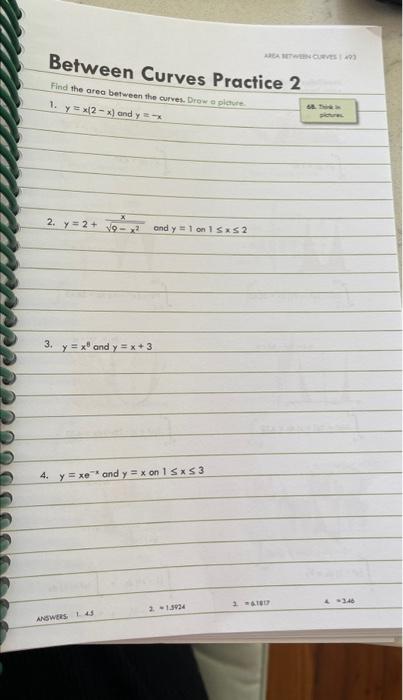 AREA BETWEEN CURVES | 493
Between Curves Practice 2
Find the area between the curves. Draw a picture.
68. Think in
pictures.
1. y = x(2 − x) and y = −x
2. y = 2 + x/√(9 − x²) and y = 1 on 1 ≤ x ≤ 2
3. y = x⁸ and y = x + 3
4. y = xe⁻ˣ and y = x on 1 ≤ x ≤ 3
ANSWERS 1. 4.5 2. ≈1.5924 3. ≈6.1817 4. ≈3.46